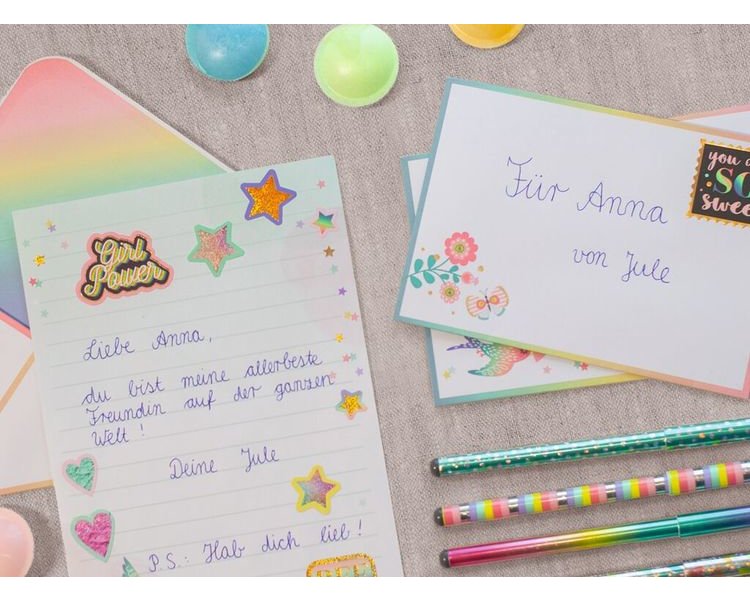 Girl
Power
Liebe Anna,
du bist meine allerbeste
Freundin auf der ganzen
Welt!
Deine Jule
P.S.: Hab dich lieb!
Für Anna
von Jule
you
SO
sweet